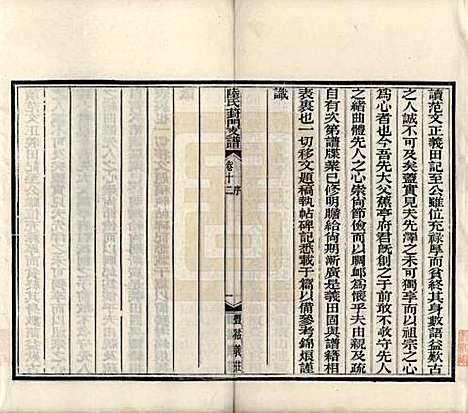 讀范文正義田記至公雖位充祿厚而貧終其身數語益歎古
之人誠不可及矣蓋實見天先澤之未可獨享而以祖宗之心
為心者也今吾先大父蕉亭府君既創之于前敢不收守先人
之緒曲體先人之心崇尚節儉而以賙卹為懷乎夫由親及疏
自有次第譜牒業已修明贍給尚期漸廣是義田固與譜籍相
表裏也一切移文題稿執帖碑記悉載于篇以備參考錦烺謹
識
陸氏葑門支譜
卷十二
序
一
豐裕義莊